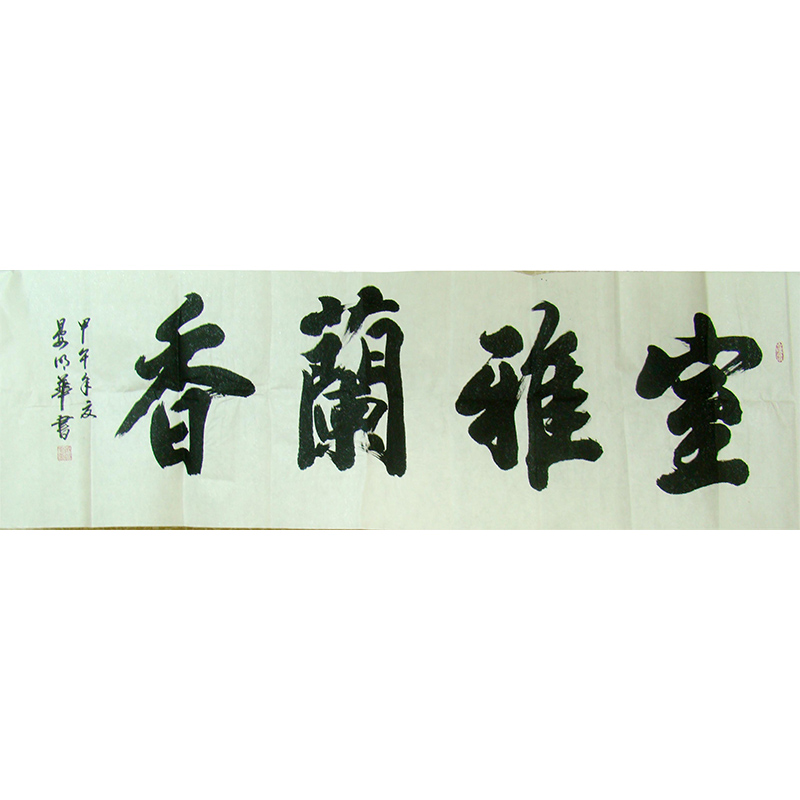 室雅蘭香
甲午年夏
晏明華書